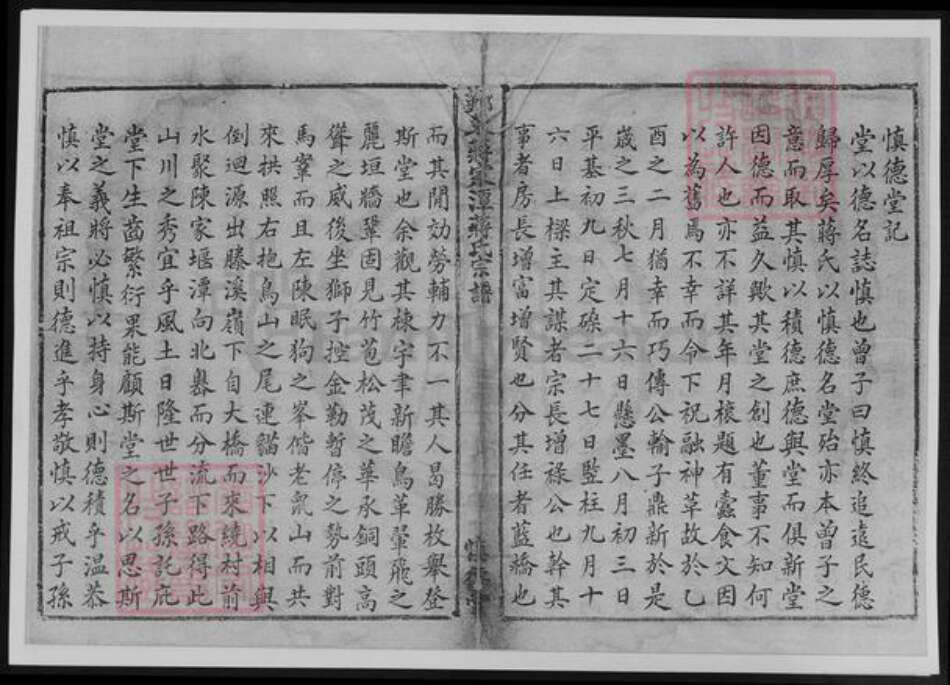 慎德堂記
堂以德名誌慎也曾子曰慎終追遠民德
歸厚矣蔣氏以慎德名堂殆亦本曾子之
意而取其慎以積德庶德與堂而俱新堂
因德而益久歟其堂之創也董事不知何
許人也亦不詳其年月榱題有蠹食文因
以為舊焉不幸而令下祝融神草故於乙
酉之二月猶幸而巧傳公輸子鼎新於是
歲之三秋七月十六日懸墨八月初三日
平基初九日定磉二十七日監柱九月十
六日上樑主其謀者宗長增祿公也幹其
事者房長增富增賢也分其任者藍橋也
蔣氏宗譜
而其間効勞輔力不一其人曷勝枚舉登
斯堂也余觀其棟宇聿新瞻鳥革翬飛之
麗垣牆鞏固見竹苞松茂之華承銅頭高
聳之威後坐獅子控金勒暫停之勢前對
馬鞌而且左陳眠狗之峯偕老鼠山而共
來拱照右抱烏山之尾連貓沙下以相與
倒迴源出滕溪嶺下自大橋而來繞村前
水聚陳家堰潭向北嶴而分流下路得此
山川之秀宜乎風土日隆世世子孫託庇
堂下生齒繁衍果能顧斯堂之名以思斯
堂之義將必慎以持身心則德積乎溫恭
慎以奉祖宗則德進乎孝敬慎以戒子孫